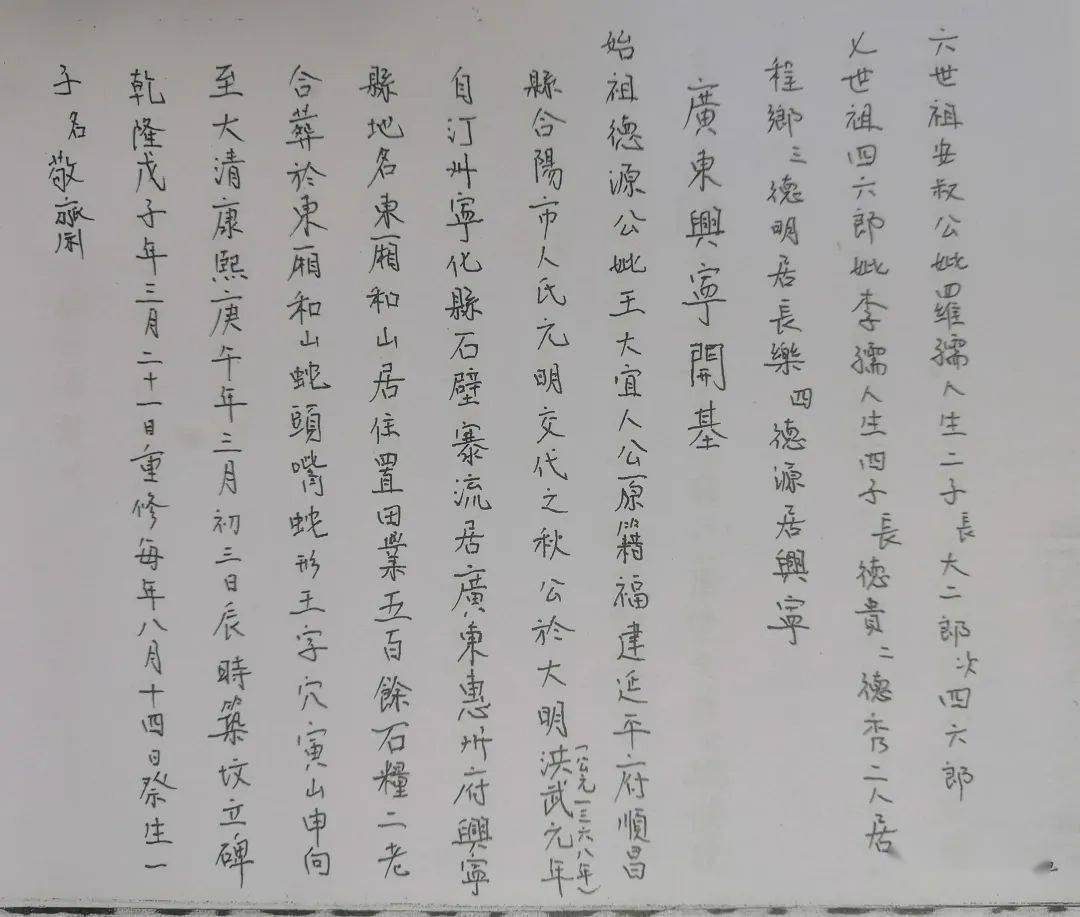 六世祖安叔公妣羅孺人生二子長大二郎次四六郎
乂世祖四六郎妣李孺人生四子長德貴二德秀二人居
程鄉三德明居長樂四德源居興寧
廣東興寧開基
始祖德源公妣王大宜人公原籍福建延平府順昌
縣合陽市人氏元明交代之秋公於大明洪武元年(公元一三六八年)
自汀州寧化縣石壁寨流居廣東惠州府興寧
縣地名東廂和山居住置田業五百餘石糧二老
合葬於東廂和山蛇頭嘴蛇形王字穴寅山申向
至大清康熙庚午年三月初三日辰時築墳立碑
乾隆戊子年三月二十一日重修每年八月十四日祭生一
子名敬齋